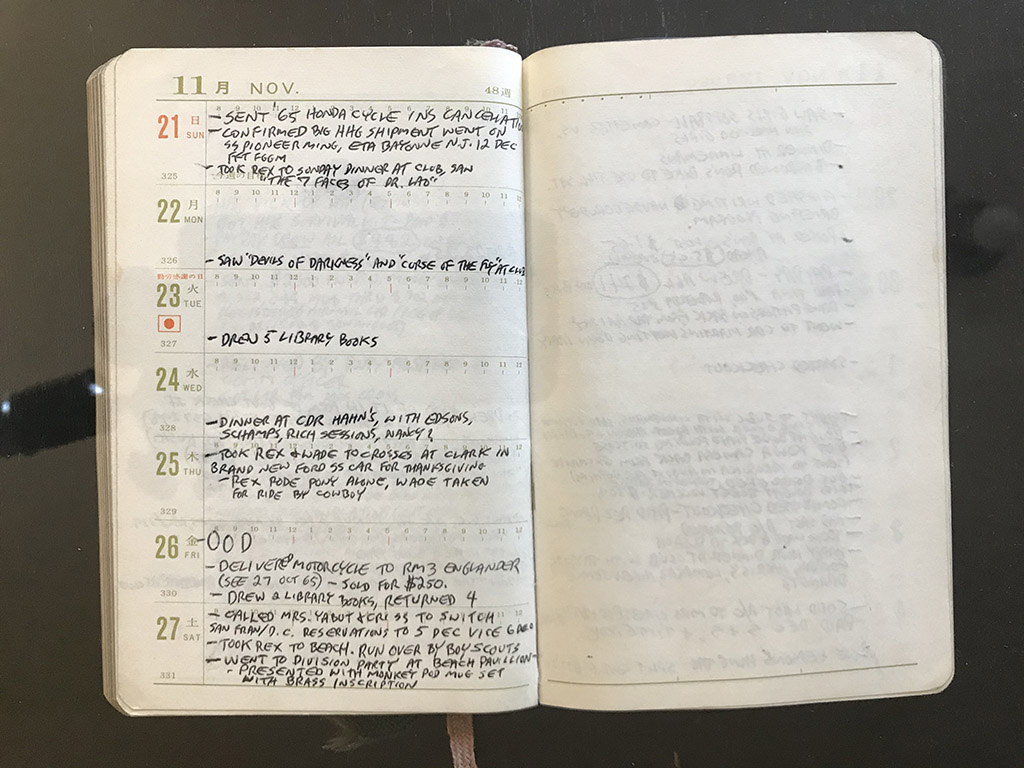 11月 NOV. 48週
8 9 10 11 12 1 2 3 4 5 6 7 8 9 10 11
21 日 SUN
- SENT '65 HONDA CYCLE INS CANCELLATION
- CONFIRMED BIG HHG SHIPMENT WENT ON
SS PIONEER MING, ETA BAYONNE N.J. 12 DEC
- TOOK REX TO SUNDAY DINNER AT CLUB, SAW
325
"THE 7 FACES OF DR. LAO"
22 月 MON
326
- SAW "DEVILS OF DARKNESS" AND "CURSE OF THE FLY" AT CLUB
勤労感謝の日
23 火 TUE
327
- DREW 5 LIBRARY BOOKS
24 水 WED
- DINNER AT CDR HAHN'S, WITH EDSONS,
328
SCHAMPS, RICH SESSIONS, NANCY?
25 木 THU
- TOOK REX & WADE TO CROSSES AT CLARK IN
BRAND NEW FORD SS CAR FOR THANKSGIVING
- REX RODE PONY ALONE, WADE TAKEN
FOR RIDE BY COWBOY
329
26 金 FRI
- OOD
- DELIVERED MOTORCYCLE TO RM3 ENGLANDER
(SEE 27 OCT 65) - SOLD FOR $250.
330
- DREW 2 LIBRARY BOOKS, RETURNED 4
27 土 SAT
- CALLED MRS. YABUT & CRISS TO SWITCH
SAN FRAN/D.C. RESERVATIONS TO 5 DEC VICE 6 DEC
- TOOK REX TO BEACH. RUN OVER BY BOY SCOUTS
- WENT TO DIVISION PARTY AT BEACH PAVILLION -
331
- PRESENTED WITH MONKEY POD MUG SET
WITH BRASS INSCRIPTION